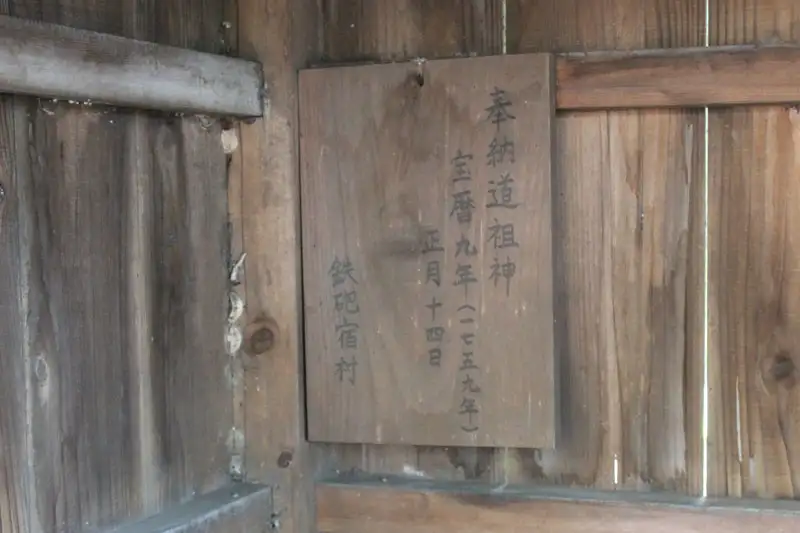 奉納道祖神
宝暦九年（一七五九年）
正月十四日
鉄砲宿村